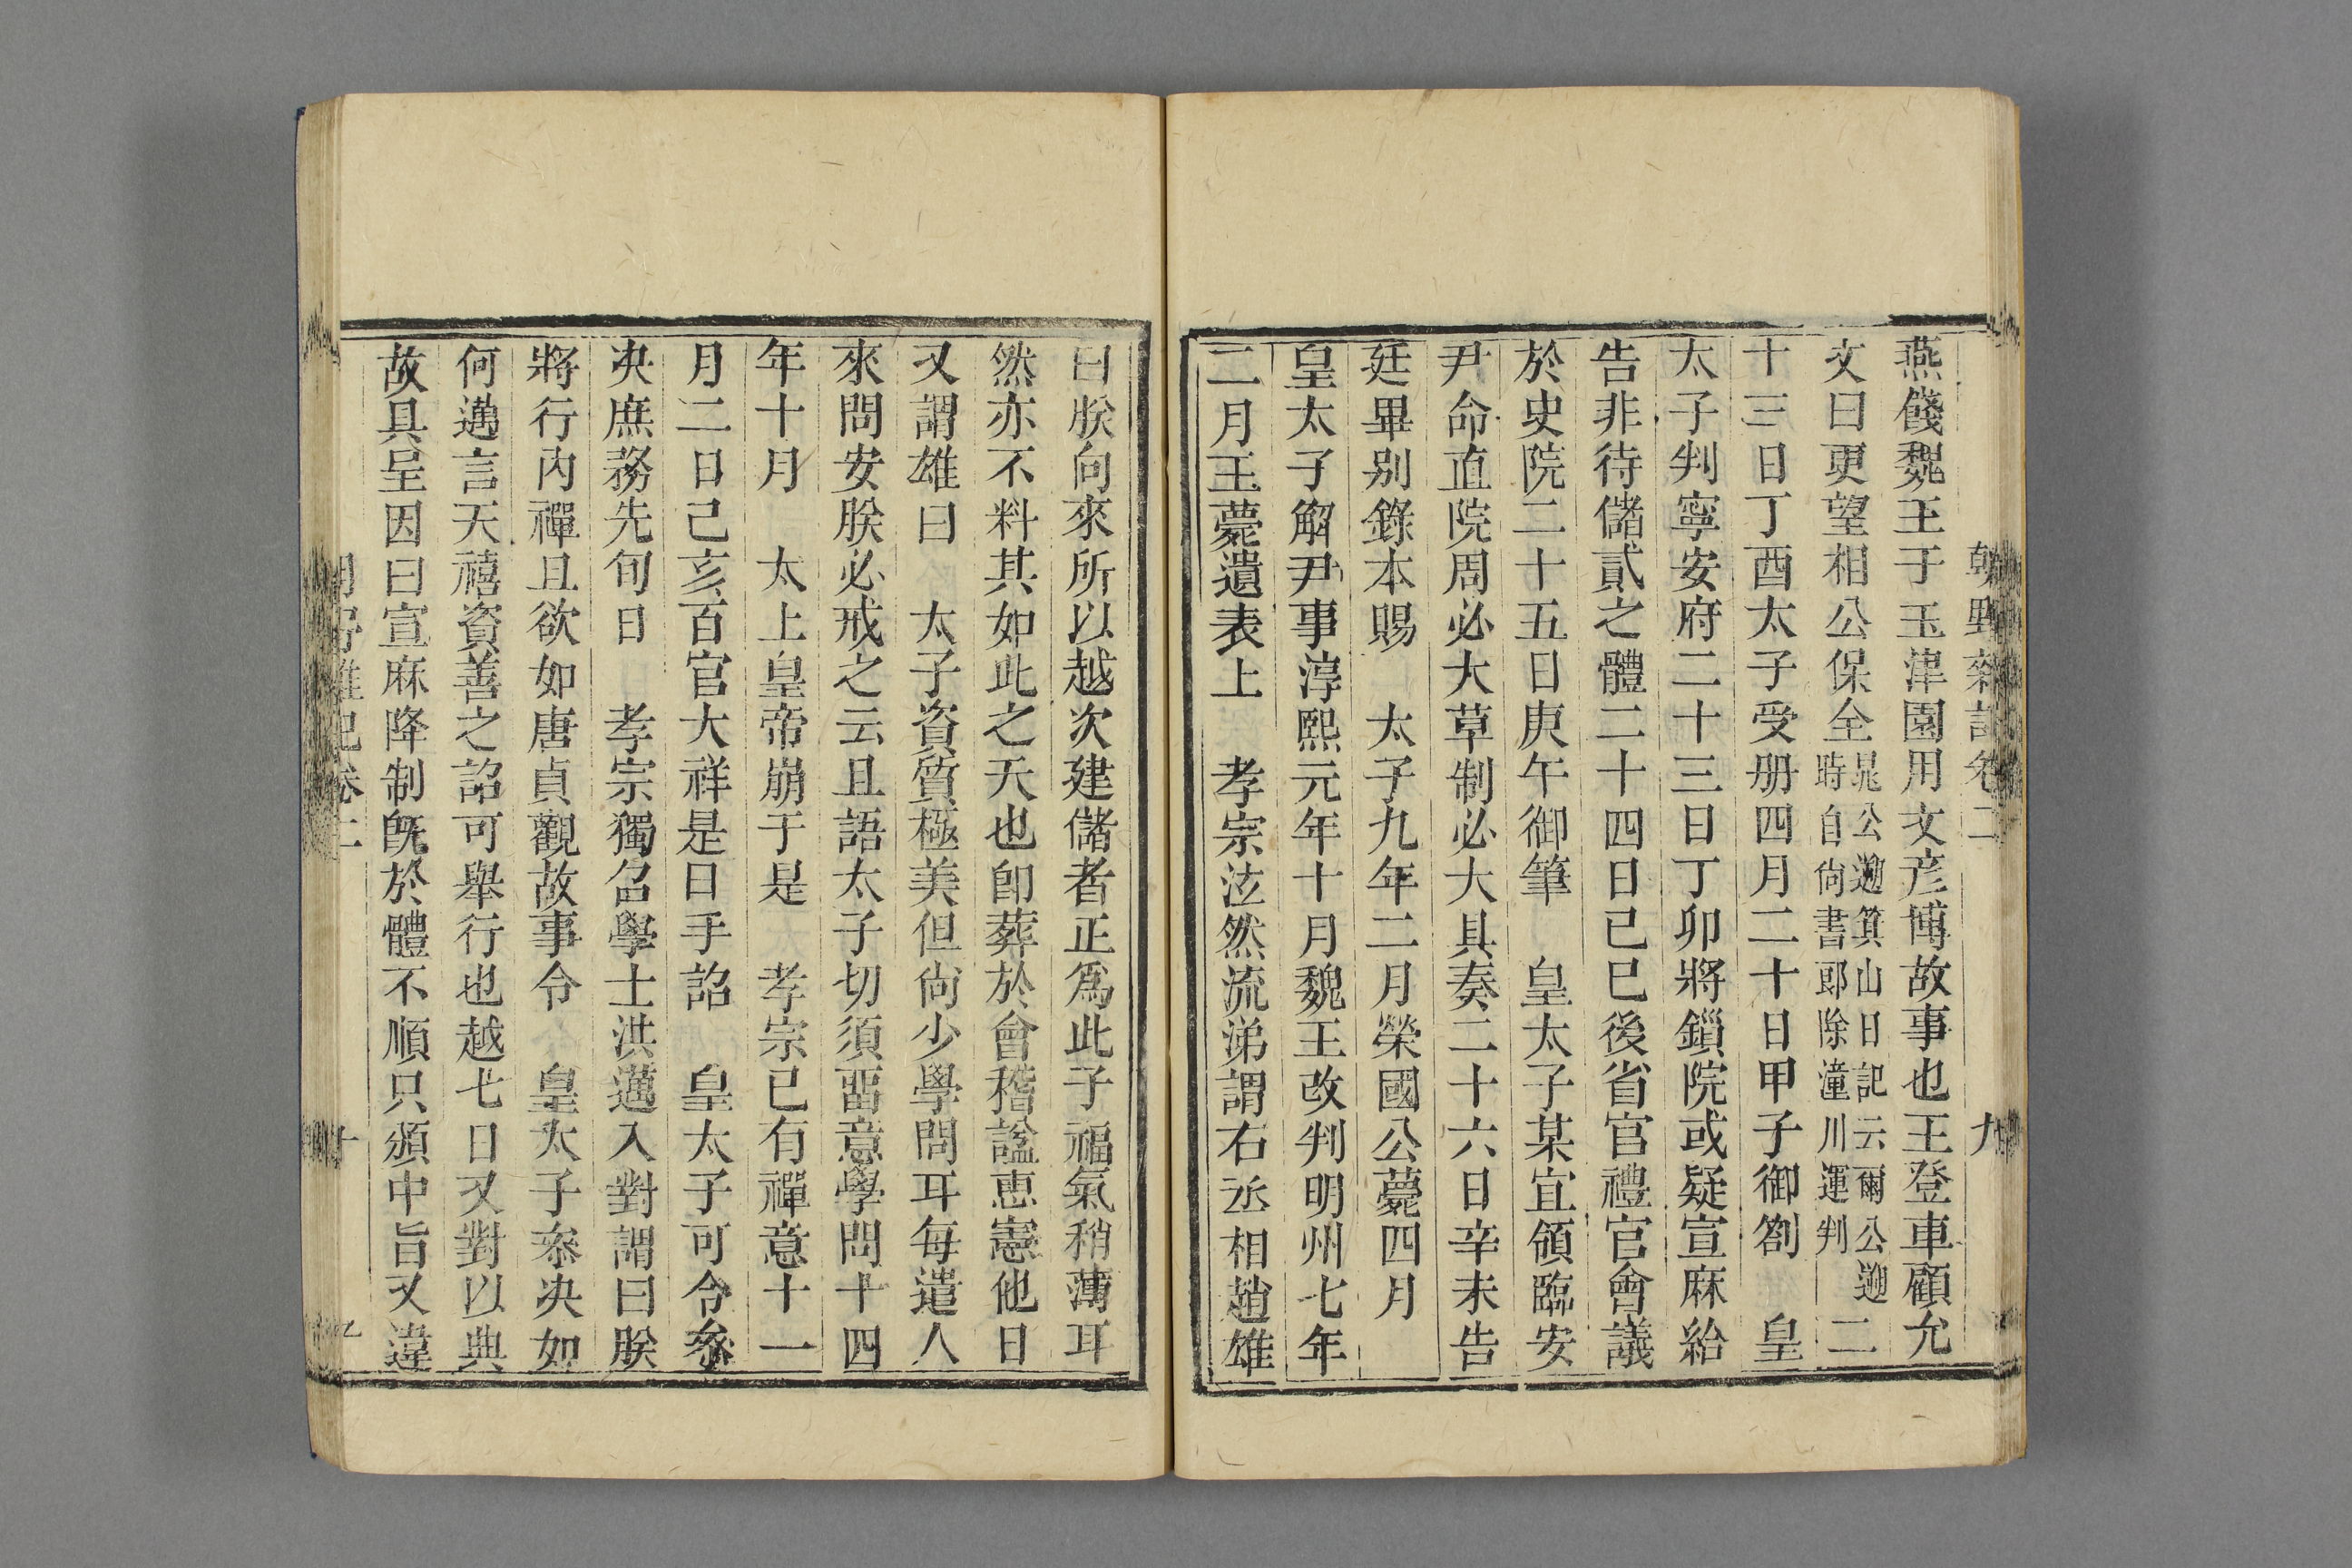 朝野雜記卷二 九
燕餞魏王于玉津園用文彦博故事也王登車顧允
文曰更望相公保全晁公遡箕山日記云爾公遡時自尙書郎除潼川運判二
十三日丁酉太子受册四月二十日甲子御劄 皇
太子判寧安府二十三日丁卯將鎖院或疑宣麻給
告非待儲貳之體二十四日已巳後省官禮官會議
於史院二十五日庚午御筆 皇太子某宜領臨安
尹命直院周必大草制必大具奏二十六日辛未告
廷畢别錄本賜 太子九年二月榮國公薨四月
皇太子解尹事淳熙元年十月魏王改判明州七年
二月王薨遺表上 孝宗泫然流涕謂右丞相趙雄
曰朕向來所以越次建儲者正爲此子福氣稍薄耳
然亦不料其如此之天也卽葬於會稽諡恵憲他日
又謂雄曰 太子資質極美但尙少學問耳每遣人
來問安朕必戒之云且語太子切須畱意學問十四
年十月 太上皇帝崩于是 孝宗已有禪意十一
月二日己亥百官大祥是日手詔 皇太子可令叅
决庶務先旬日 孝宗獨召學士洪邁入對謂曰朕
將行內禪且欲如唐貞觀故事令 皇太子叅决如
何邁言天禧資善之詔可舉行也越七日又對以典
故具呈因曰宣麻降制旣於體不順只頒中旨又違
卷二 十